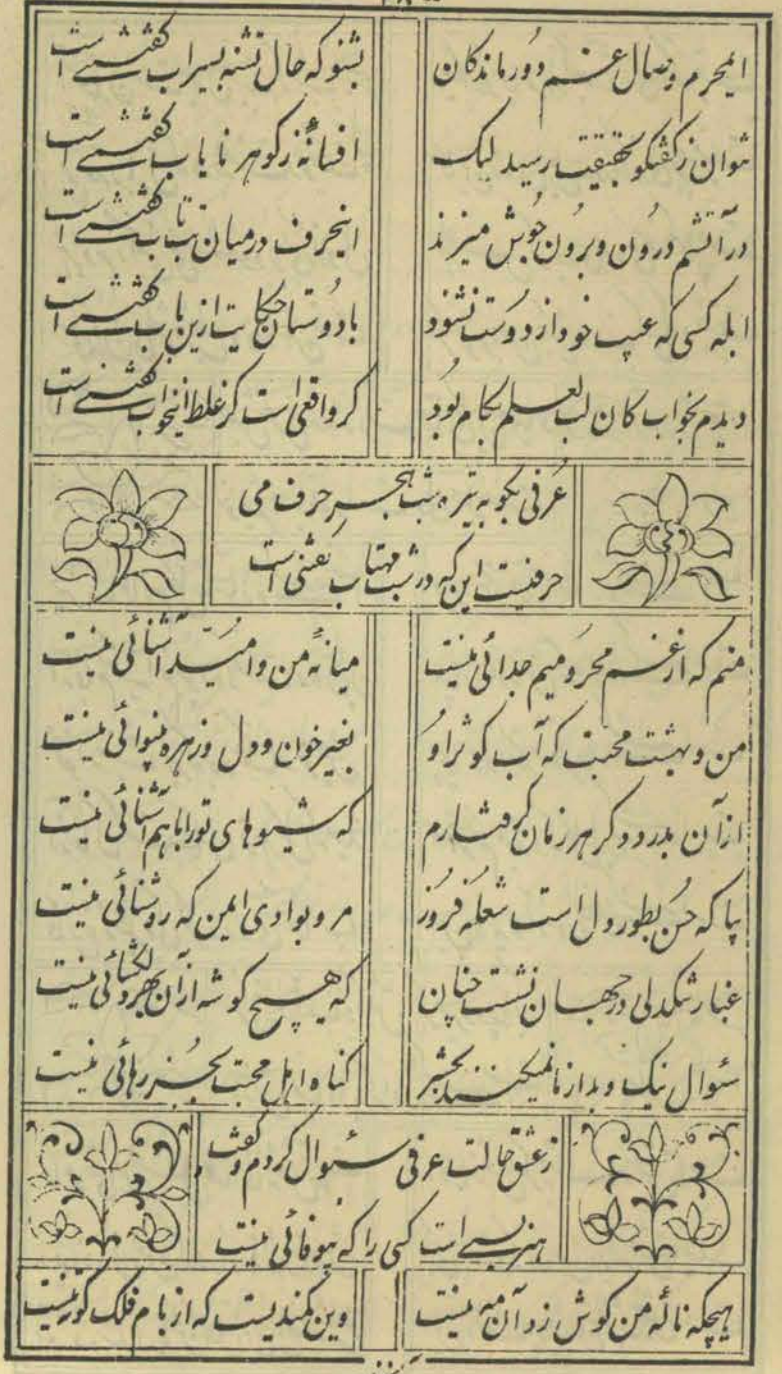 ایمحرم وصال غم دورماندکان
بشنو که حال تشنه بسیراب گفتنی است
نتوان ز کفتگو بحقیقت رسید لیک
افسانهٔ ز کوهر نایاب گفتنی است
در آتشم درون و برون جوش میزند
اینحرف در میان تب و تاب گفتنی است
ابله کسی که عیب خود از دوست نشنود
با دوستان حکایت ازین باب گفتنی است
دیدم بخواب کان لب لعلم بکام بود
کر واقعی است کر غلط اینخواب گفتنی است
عرفی بگو به تیره شب هجر حرف می
حرفیست این که در شب مهتاب گفتنی است
منم که از غم محرومیم جدائی نیست
میانهٔ من و امید آشنائی نیست
من و بهشت محبت که آب کوثر او
بغیر خون و دل و زهره بینوائی نیست
از آن بدرد دکر هر زمان گرفتارم
که شیوهای تو را با هم آشنائی نیست
بیا که حسن بطور دل است شعله فروز
مرو بوادی ایمن که روشنائی نیست
غبار تنگدلی در جهان نشست چنان
که هیچ کوشه از آن بهر دلگشائی نیست
سئوال نیک و بد از ما نمیکنند بحشر
کناه اهل محبت بجز رهائی نیست
ز عشق حالت عرفی سئوال کردم و گفت
هنر بسی است کسی را که بیوفائی نیست
هیچکه نالهٔ من کوش زد آن مه نیست
وین کمندیست که از بام فلک کوته نیست